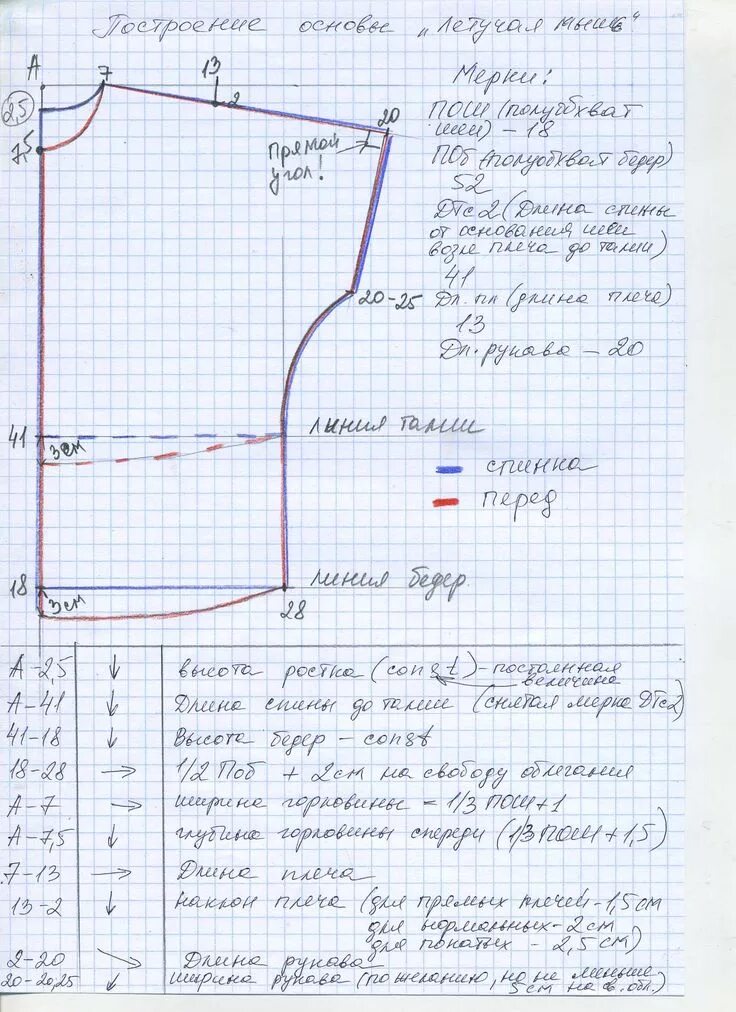 Построение основы „Летучая мышь"
Мерки:
ПОШ (полуобхват
шеи) – 18
ПОб (полуобхват бедер)
52
ДТс2 (Длина спины
от основания шеи
возле плеча до талии)
41
Дл. пл (длина плеча)
13
Дл. рукава – 20
А
7
13
2
20
2,5
7,5
Прямой
угол!
20-25
41
3см
линия талии
спинка
перед
18
3см
линия бедер.
28
А-2,5 ↓ высота ростка (const) – постоянная
величина
А-41 ↓ Длина спины до талии (снятая мерка ДТс2)
41-18 ↓ Высота бедер – const
18-28 → 1/2 Поб + 2см на свободу облегания
А-7 → ширина горловины = 1/3 ПОШ+1
А-7,5 ↓ глубина горловины спереди (1/3 ПОШ + 1,5)
7-13 → Длина плеча
13-2 ↓ наклон плеча (для прямых плечей – 1,5см
для нормальных – 2см
для покатых – 2,5см)
2-20 ↘ Длина рукава
20-20,25 ↓ ширина рукава (по желанию, но не меньше
5см на св. обл.)